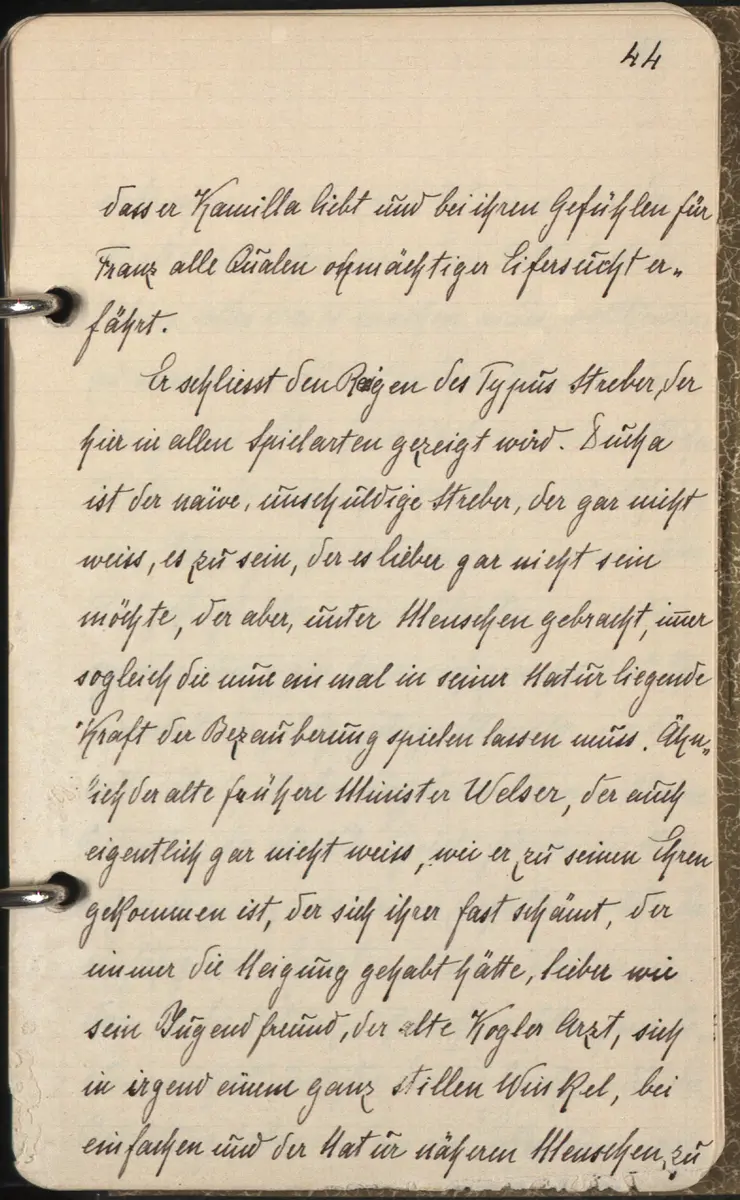 44
dass er Kamilla liebt und bei ihren Gefühlen für
Franz alle Qualen ohnmächtiger Eifersucht er„
fährt.
Er schliesst den Reigen des Typus Streber, der
hier in allen Spielarten gezeigt wird. Ducha
ist der naïve, unschuldige Streber, der gar nicht
weiss, es zu sein, der es lieber gar nicht sein
möchte, der aber, unter Menschen gebracht, im̅er
sogleich die nun einmal in seiner Natur liegende
Kraft der Bezauberung spielen lassen muss. Ähn„
lich der alte frühere Minister Welser, der auch
eigentlich gar nicht weiss, wie er zu seinen Ehren
gekommen ist, der sich ihrer fast schämt, der
immer die Neigung gehabt hätte, lieber wie
sein Jugendfreund, der alte Kogler Arzt, sich
in irgend einem ganz stillen Winkel, bei
einfachen und der Natur näheren Menschen, zu